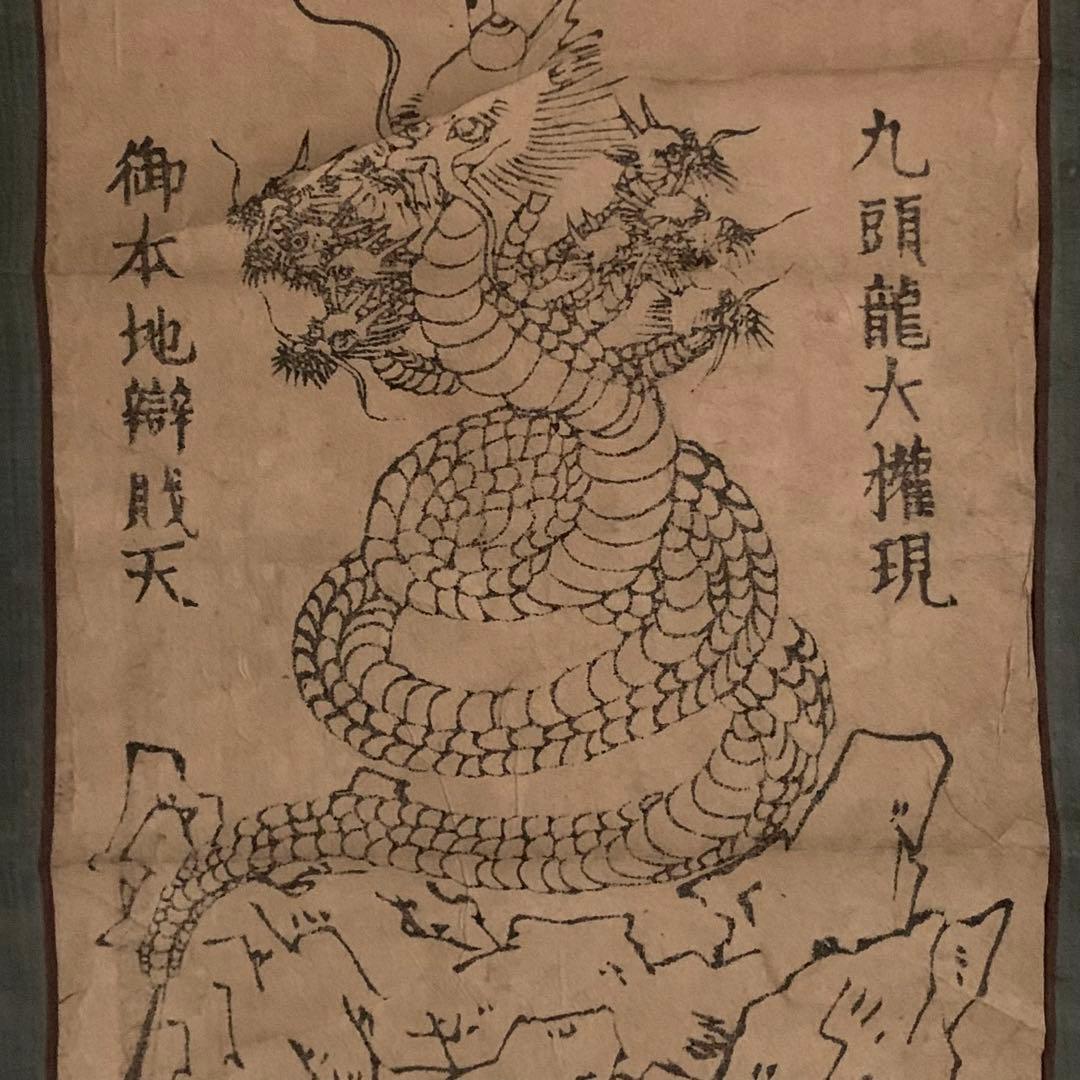 九頭龍大權現
御本地辯戝天